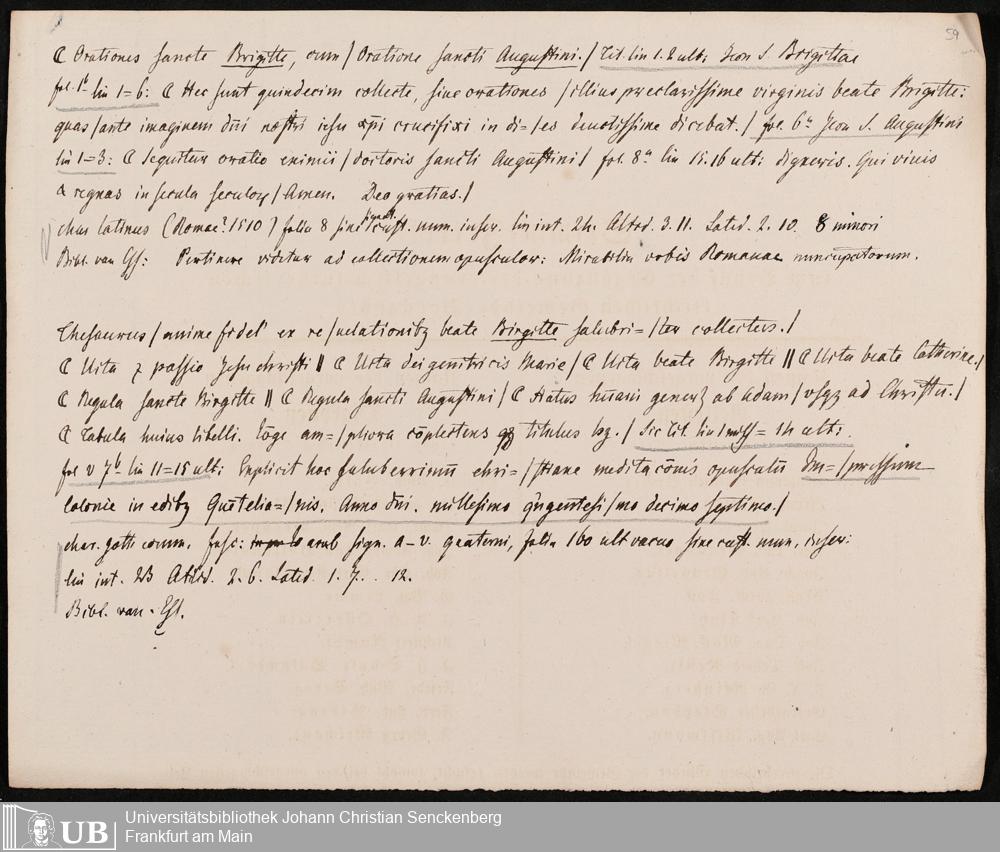 59
₵ Orationes sancte Brigitte, cum / Oratione sancti Augustini. / Tit. lin 1. 2 ult: Icon S. Brigittae
fol. 1b lin 1=6: ₵ Hec sunt quindecim collecte, siue orationes / illius preclarissime virginis beate Brigitte:
quas / ante imaginem dñi nostri iesu xpi crucifixi in di= / es deuotissime dicebat. / fol. 6a Icon S. Augustini
lin 1=3: ₵ Sequitur oratio eximii / doctoris sancti Augustini / fol. 8a lin 15. 16 ult: digneris. Qui viuis
& regnas in secula seculoꝝ / Amen. Deo gratias. /
char latinus (Romae? 1510) folia 8 sine signat. cust. num. inscr. lin int. 24. Altid. 3. 11. Latid. 2. 10. 8 minori
Bibl. van Eſſ: Pertinere videtur ad collectionem opusculor: Mirabilia vrbis Romanae nuncupatorum.
Thesaurus / anime fidel' ex re / uelationibꝫ beate Birgitte salubri= / ter collectus. /
₵ Uita ⁊ passio Jesu christi || ₵ Uita dei genitricis Marie / ₵ Uita beate Birgitte || ₵ Uita beate Catherine. /
₵ Regula sancte Birgitte || ₵ Regula sancti Augustini / ₵ Status hũani generꝭ ab Adam / vsqꝫ ad Christũ. /
₵ Tabula huius libelli. Lõge am= / pliora cõplectens qꝫ titulus hꝫ. / Sic tit. lin = 14 ult:
fol v 7b lin 11=15 ult: Explicit hoc saluberrimũ chri= / stiane meditacõnis opusculũ Im= / pressum
Colonie in edibꝫ Quẽtelia= / nis. Anno dñi. millesimo q̃ngentesi / mo decimo septimo. /
char. goth. comm. fasc: arab sign. a – v. quaterni, folia 160 ult vacuo sine cust. num. inscr:
lin int. 23 Altid. 2. 6. Latid. 1. 7. . 12.
Bibl. van. Eſſ.
UB
Universitätsbibliothek Johann Christian Senckenberg
Frankfurt am Main